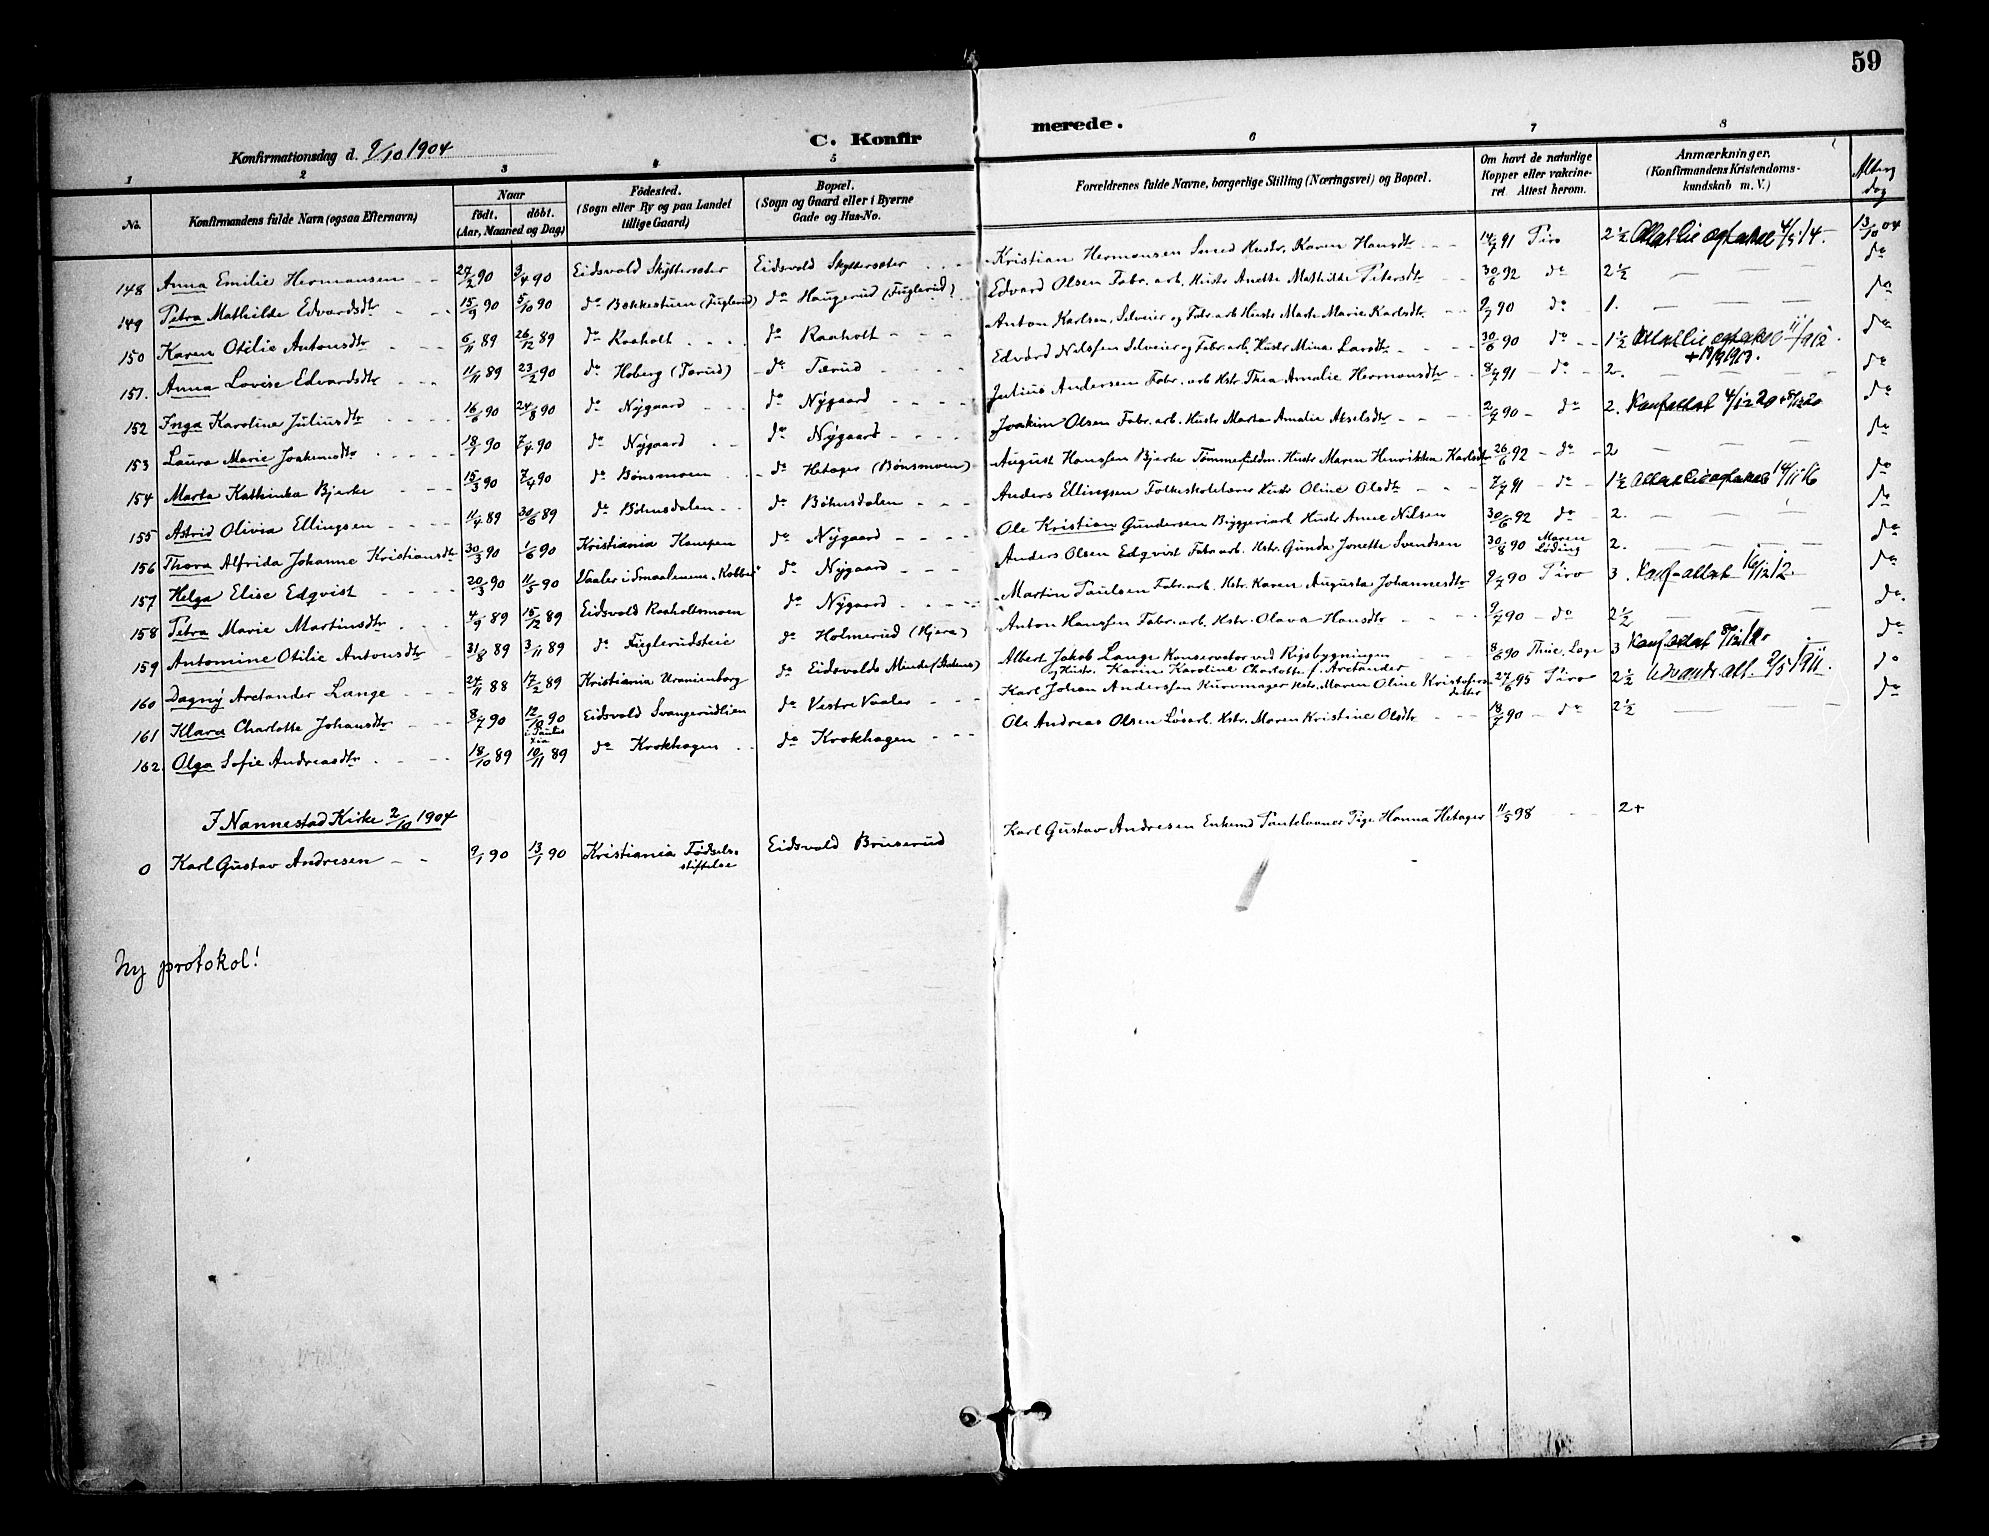 59
Konfirmationsdag d. 9/10 1904
C. Konfir merede.
1 2 3 4 5 6 7 8
No. Konfirmandens fulde Navn (ogsaa Efternavn) Naar født. døbt. (Aar, Maaned og Dag) Fødested. (Sogn eller By og paa Landet tillige Gaard) Bopæl. (Sogn og Gaard eller i Byerne Gade og Hus-No. Forældrenes fulde Navne, borgerlige Stilling (Næringsvei) og Bopæl. Om havt de naturlige Kopper eller vakcineret. Attest herom. Anmærkninger. (Konfirmandens Kristendomskundskab m. V.) Altergdag
148 Anna Emilie Hermansen 27/2 90 3/4 90 Eidsvold Skyttersæter Eidsvold Skyttersæter Kristian Hermansen Smed Hustr. Karen Hansdtr 14/7 91 Piro 2 1/2 4/5 14. 13/10 04
149 Petra Mathilde Edvardsdtr 15/9 90 5/10 90 do Bakkestuen (Fuglerud) do Haugerud (Fuglerud) Edvard Olsen Fabr. arb. Hustr Anette Mathilde Petersdtr 30/6 92 do 2 1/2 do
150 Karen Otilie Antonsdtr 6/11 89 26/12 89 do Raaholt do Raaholt Anton Karlsen, Selveier og Fabr. arb Hustr Marte Marie Karlsdtr 2/7 90 do 1. do
151. Anna Lovise Edvardsdtr 11/11 89 23/2 90 do Hoberg (Tærud) do Tærud Edvard Nilssen Selveier og Fabr. arb. Hustr Mina Larsdtr 30/6 90 do 1 1/2 11/9 12. + 19/9 1913. do
152 Inga Karoline Juliusdtr 16/6 90 24/8 90 do Nygaard do Nygaard Julius Andersen Fabr. arb Hstr. Thea Amalie Hermansdtr 8/7 91 do 2. do
153 Laura Marie Joakimsdtr 18/1 90 7/4 90 do Nygaard do Nygaard Joakim Olsen Fabr. arb. Hustr Marta Amalie Akselsdtr 2/7 90 do 2. Konf. attest 4/12 20 + 8/12 20 do
154 Marta Kathinka Bjerke 15/3 90 7/4 90 do Bønsmoen do Hetager (Bønsmoen) August Hanssen Bjerke Tømmefuldm. Hustr Maren Henrikka Karlsdtr 26/6 92 do 2 do
155 Astrid Olivia Ellingsen 11/4 89 30/6 89 do Bøhnsdalen do Bøhnsdalen Anders Ellingsen Folkeskolelærer Hustr Oline Olsdtr 2/7 91 do 1 1/2 14/11 16 do
156 Thora Alfrida Johanne Kristiansdtr 30/3 90 1/6 90 Kristiania Kampen do Nygaard Ole Kristian Gundersen Byggeriarb Hustr Anne Nilsen 30/6 92 do 2. do
157 Helga Elise Edqvist 20/3 90 11/5 90 Vaaler i Smaalenene do Nygaard Anders Olsen Edqvist Fabr. arb. Hstr. Gunda Jonette Svendsen 30/8 90 Maren Løding 2. do
158 Petra Marie Martinsdtr 4/9 89 15/12 89 Eidsvold Raaholtsmoen do Nygaard Martin Paulsen Fabr. arb. Hstr. Karen Augusta Johannesdtr 2/7 90 Piro 3. Konf. attest 16/12 12 do
159 Antomine Otilie Antonsdtr 31/8 89 3/11 89 do Fuglerudsteie do Holmerud (Hjera) Anton Hanssen Fabr. arb. Hstr. Olava Hansdtr 9/7 90 do 2 1/2 do.
160 Dagny Arctander Lange 24/11 88 17/2 89 Kristiania Uranienborg do Eidsvolds Minde Albert Jakob Lange Konservator ved Rigsbygningen og Hustr. Karin Karoline Charlotte f. Arctander 8/6 90 Thue, Læge 3 Konf. attest 8/12 do
161 Klara Charlotte Johansdtr 8/7 90 12/10 90 i Paulus Kia Eidsvold Svangerudlien do Vestre Vaaler Karl Johan Anderssen Kurvmager Hstr. Maren Oline Kristofersdatter 27/6 95 Piro 2 1/2 Udvandr. att. 2/5 1911. do
162. Olga Sofie Andreasdtr 18/10 89 10/11 89 do Krokhagen do Krokhagen Ole Andreas Olsen Løsarb. Hstr. Maren Kristine Olsdtr 18/7 90 do 2 1/2 do
I Nannestad Kirke 2/10 1904
0 Karl Gustav Andresen 9/1 90 13/1 90 Kristiania Fødselsstiftelse Eidsvold Bruserud Karl Gustav Andresen Enkemd Pantelaaner Pige Hanna Hetager 11/5 98 2+
Ny protokol!